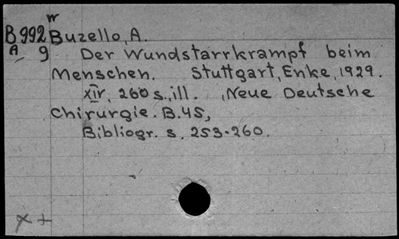 w
B992 Buzello, A.
A 9 Der Wundstarrkrampf beim
Menschen. Stuttgart, Enke, 1929.
XIV, 260 s., ill. (Neue Deutsche
Chirurgie. B. 45,
Bibliogr. s. 253-260.
x +